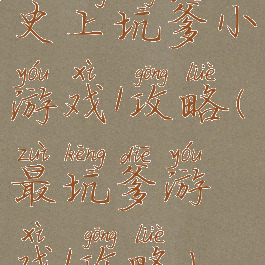 史上坑爹小
yóu xì gōng lüè
游戏1攻略(
zuì kēng diē yóu
最坑爹游
xì gōng lüè
戏1攻略)